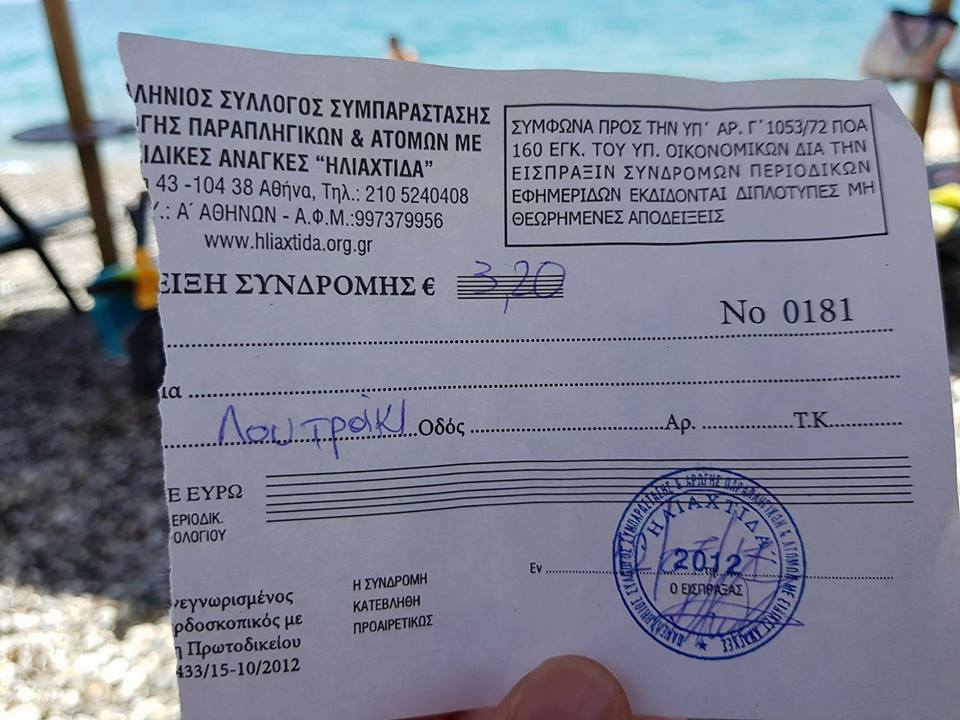 ΛΗΝΙΟΣ ΣΥΛΛΟΓΟΣ ΣΥΜΠΑΡΑΣΤΑΣΗΣ
ΓΗΣ ΠΑΡΑΠΛΗΓΙΚΩΝ & ΑΤΟΜΩΝ ΜΕ
ΙΔΙΚΕΣ ΑΝΑΓΚΕΣ “ΗΛΙΑΧΤΙΔΑ”
43 -104 38 Αθήνα, Τηλ.: 210 5240408
Υ.: Α΄ ΑΘΗΝΩΝ - Α.Φ.Μ.:997379956
www.hliaxtida.org.gr
ΣΥΜΦΩΝΑ ΠΡΟΣ ΤΗΝ ΥΠ΄ ΑΡ. Γ΄1053/72 ΠΟΛ
160 ΕΓΚ. ΤΟΥ ΥΠ. ΟΙΚΟΝΟΜΙΚΩΝ ΔΙΑ ΤΗΝ
ΕΙΣΠΡΑΞΙΝ ΣΥΝΔΡΟΜΩΝ ΠΕΡΙΟΔΙΚΩΝ
ΕΦΗΜΕΡΙΔΩΝ ΕΚΔΙΔΟΝΤΑΙ ΔΙΠΛΟΤΥΠΕΣ ΜΗ
ΘΕΩΡΗΜΕΝΕΣ ΑΠΟΔΕΙΞΕΙΣ
ΕΙΞΗ ΣΥΝΔΡΟΜΗΣ € 3,20
Νο 0181
ια
Λουτράκι Οδός Αρ. Τ.Κ.
Ε ΕΥΡΩ
ΕΡΙΟΔΙΚ.
ΟΛΟΓΙΟΥ
Εν
2012
Ο ΕΙΣΠΡΑΞΑΣ
ΠΑΝΕΛΛΗΝΙΟΣ ΣΥΛΛΟΓΟΣ ΣΥΜΠΑΡΑΣΤΑΣΗΣ & ΑΡΩΓΗΣ ΠΑΡΑΠΛΗΓΙΚΩΝ & ΑΤΟΜΩΝ ΜΕ ΕΙΔΙΚΕΣ ΑΝΑΓΚΕΣ
Η ΛΙΑΧΤΙΔΑ
νεγνωρισμένος
ρδοσκοπικός με
η Πρωτοδικείου
433/15-10/2012
Η ΣΥΝΔΡΟΜΗ
ΚΑΤΕΒΛΗΘΗ
ΠΡΟΑΙΡΕΤΙΚΩΣ